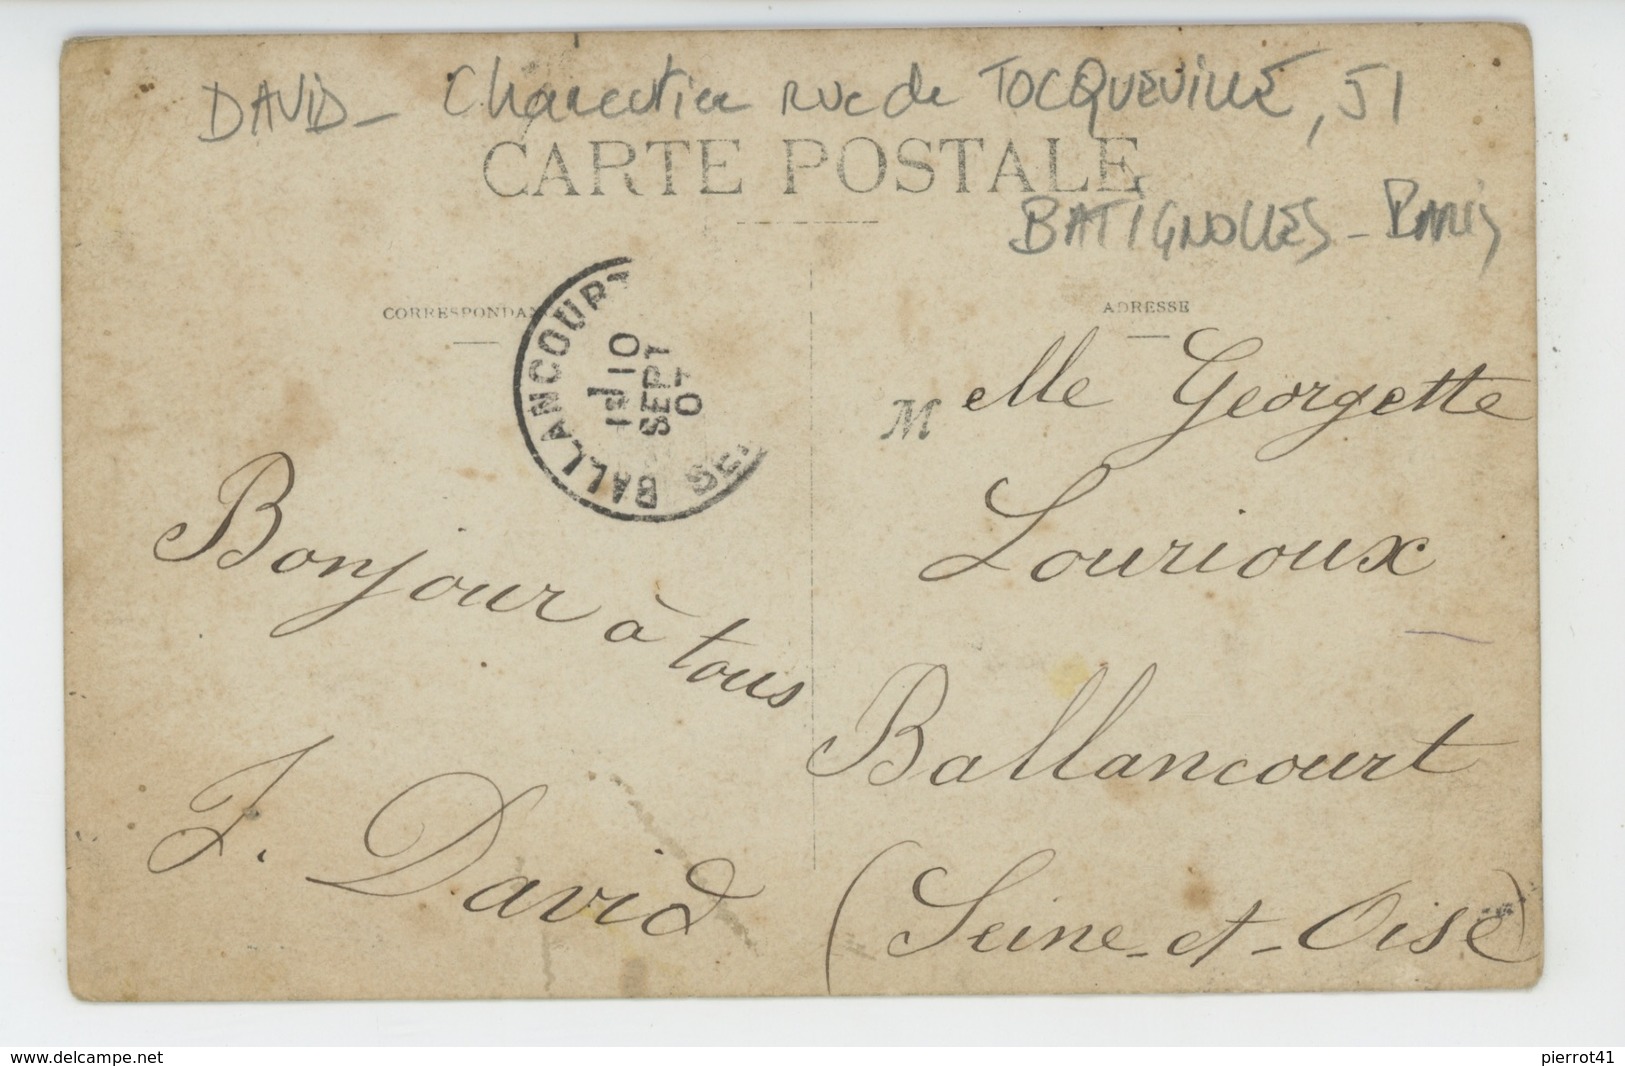 DAVID - Charcutier rue de TOCQUEVILLE, 51
CARTE POSTALE
BATIGNOLLES - PARIS
CORRESPONDAN
ADRESSE
BALLANCOURT
10
SEPT
07
Melle Georgette
Lourioux
Bonjour à tous
Ballancourt
J. David
(Seine-et-Oise)
www.delcampe.net
pierrot41